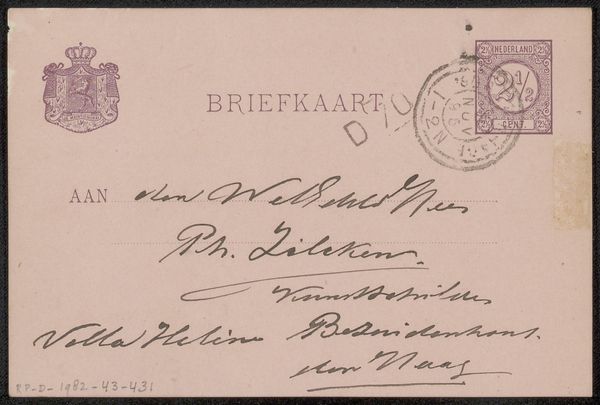 NEDERLAND
2½ CENT
BRIEFKAART
D 70
NOV
95
1-2 N
AAN den WelEdele Heer
Ph. Zilcken
Kunstschilder
Villa Helene Bezuidenhout.
den Haag
RP-D-1982-43-431